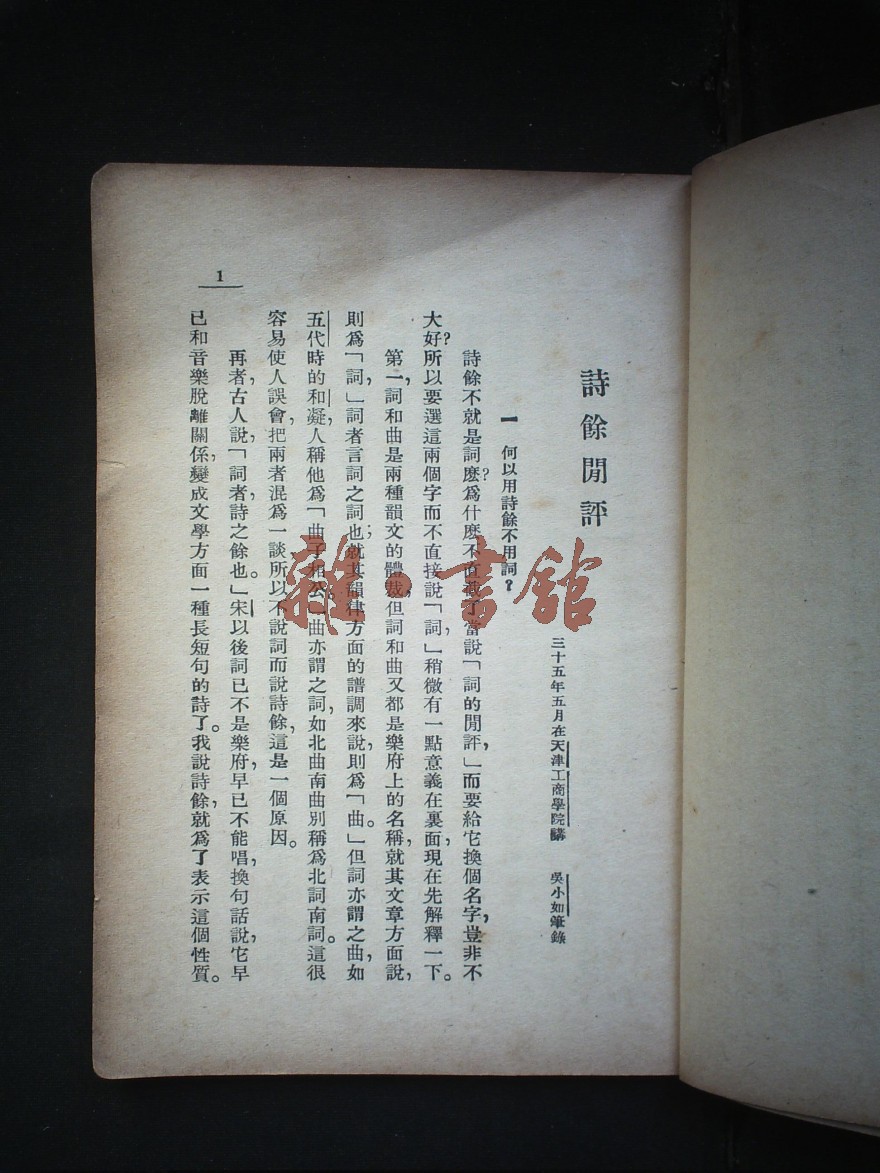 詩餘閒評
三十五年五月在天津工商學院講　吳小如筆錄
一　何以用詩餘不用詞？
詩餘不就是詞麽？爲什麽不直截了當說「詞的閒評，」而要給它換個名字，豈非不
大好？所以要選這兩個字而不直接說「詞，」稍微有一點意義在裏面，現在先解釋一下。
第一，詞和曲是兩種韻文的體裁，但詞和曲又都是樂府上的名稱，就其文章方面說，
則爲「詞，」詞者言詞之詞也；就其韻律方面的譜調來說，則爲「曲。」但詞亦謂之曲，如
五代時的和凝，人稱他爲「曲子相公。」曲亦謂之詞，如北曲南曲別稱爲北詞南詞。這很
容易使人誤會，把兩者混爲一談所以不說詞而說詩餘，這是一個原因。
再者，古人說，「詞者，詩之餘也。」宋以後詞已不是樂府，早已不能唱，換句話說，它早
已和音樂脫離關係，變成文學方面一種長短句的詩了。我說詩餘，就爲了表示這個性質。
1
雜·書館